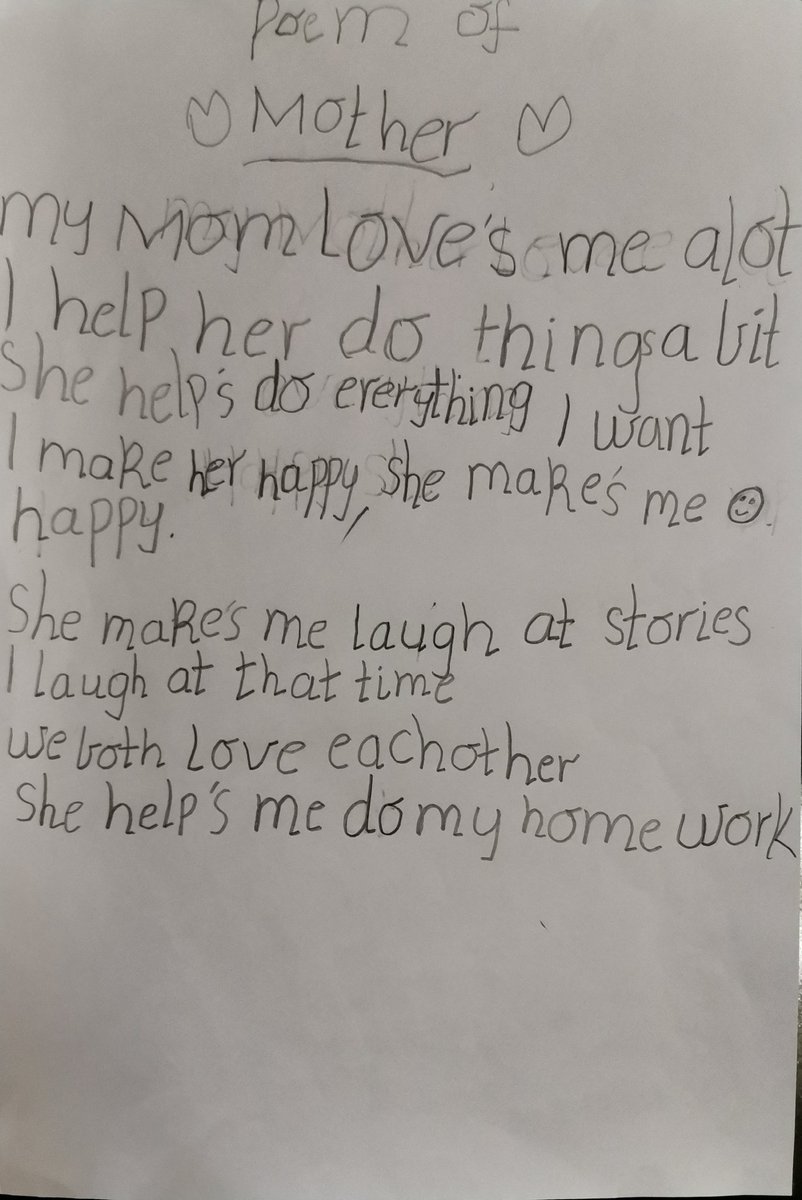 Poem of
Mother
my Mom Love's me alot
I help her do things a bit
She help's do everything I want
I make her happy, She make's me
happy.
She make's me laugh at stories
I laugh at that time
we both Love eachother
She help's me do my home work